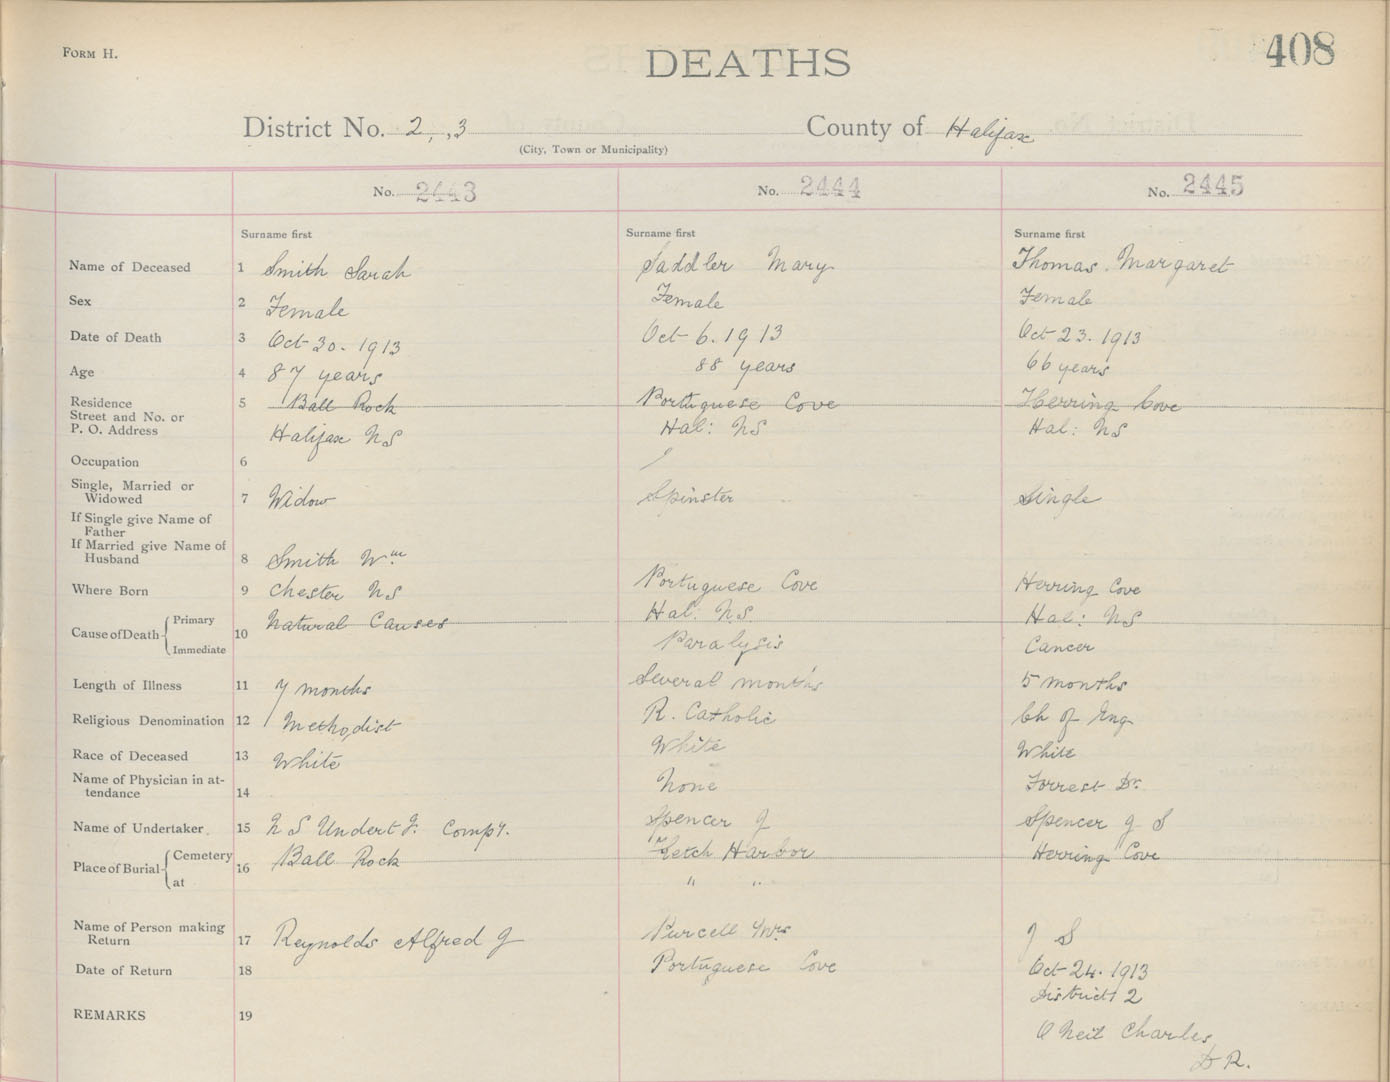 FORM H.
DEATHS
408
District No. 2, ,3
County of Halifax
(City, Town or Municipality)
No. 2443
No. 2444
No. 2445
Surname first
Surname first
Surname first
Name of Deceased 1 Smith Sarah Saddler Mary Thomas. Margaret
Sex 2 Female Female Female
Date of Death 3 Oct 30. 1913 Oct 6. 1913 Oct 23. 1913
Age 4 87 years 88 years 66 years
Residence 5 Ball Rock Portuguese Cove Herring Cove
Street and No. or
P. O. Address Halifax NS Hal: NS Hal: NS
Occupation 6
Single, Married or
Widowed 7 Widow Spinster Single
If Single give Name of
Father
If Married give Name of
Husband 8 Smith Wm
Where Born 9 Chester NS Portuguese Cove Herring Cove
Hal: N.S. Hal: NS
Cause of Death Primary 10 Natural Causes
Immediate Paralysis Cancer
Length of Illness 11 7 months Several months 5 months
Religious Denomination 12 Methodist R. Catholic Ch of Eng
Race of Deceased 13 White White White
Name of Physician in at-
tendance 14 None Forrest Dr.
Name of Undertaker 15 N S Undert g. Compy. Spencer J Spencer J S
Place of Burial Cemetery 16 Ball Rock Ketch Harbor Herring Cove
at " "
Name of Person making
Return 17 Reynolds Alfred J Purcell Mrs J S
Date of Return 18 Portuguese Cove Oct 24. 1913
District 2
REMARKS 19
O Neil Charles
D R.